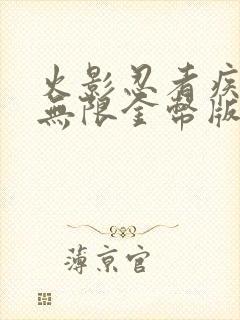 火影忍者疾
無限金幣版
薄京官